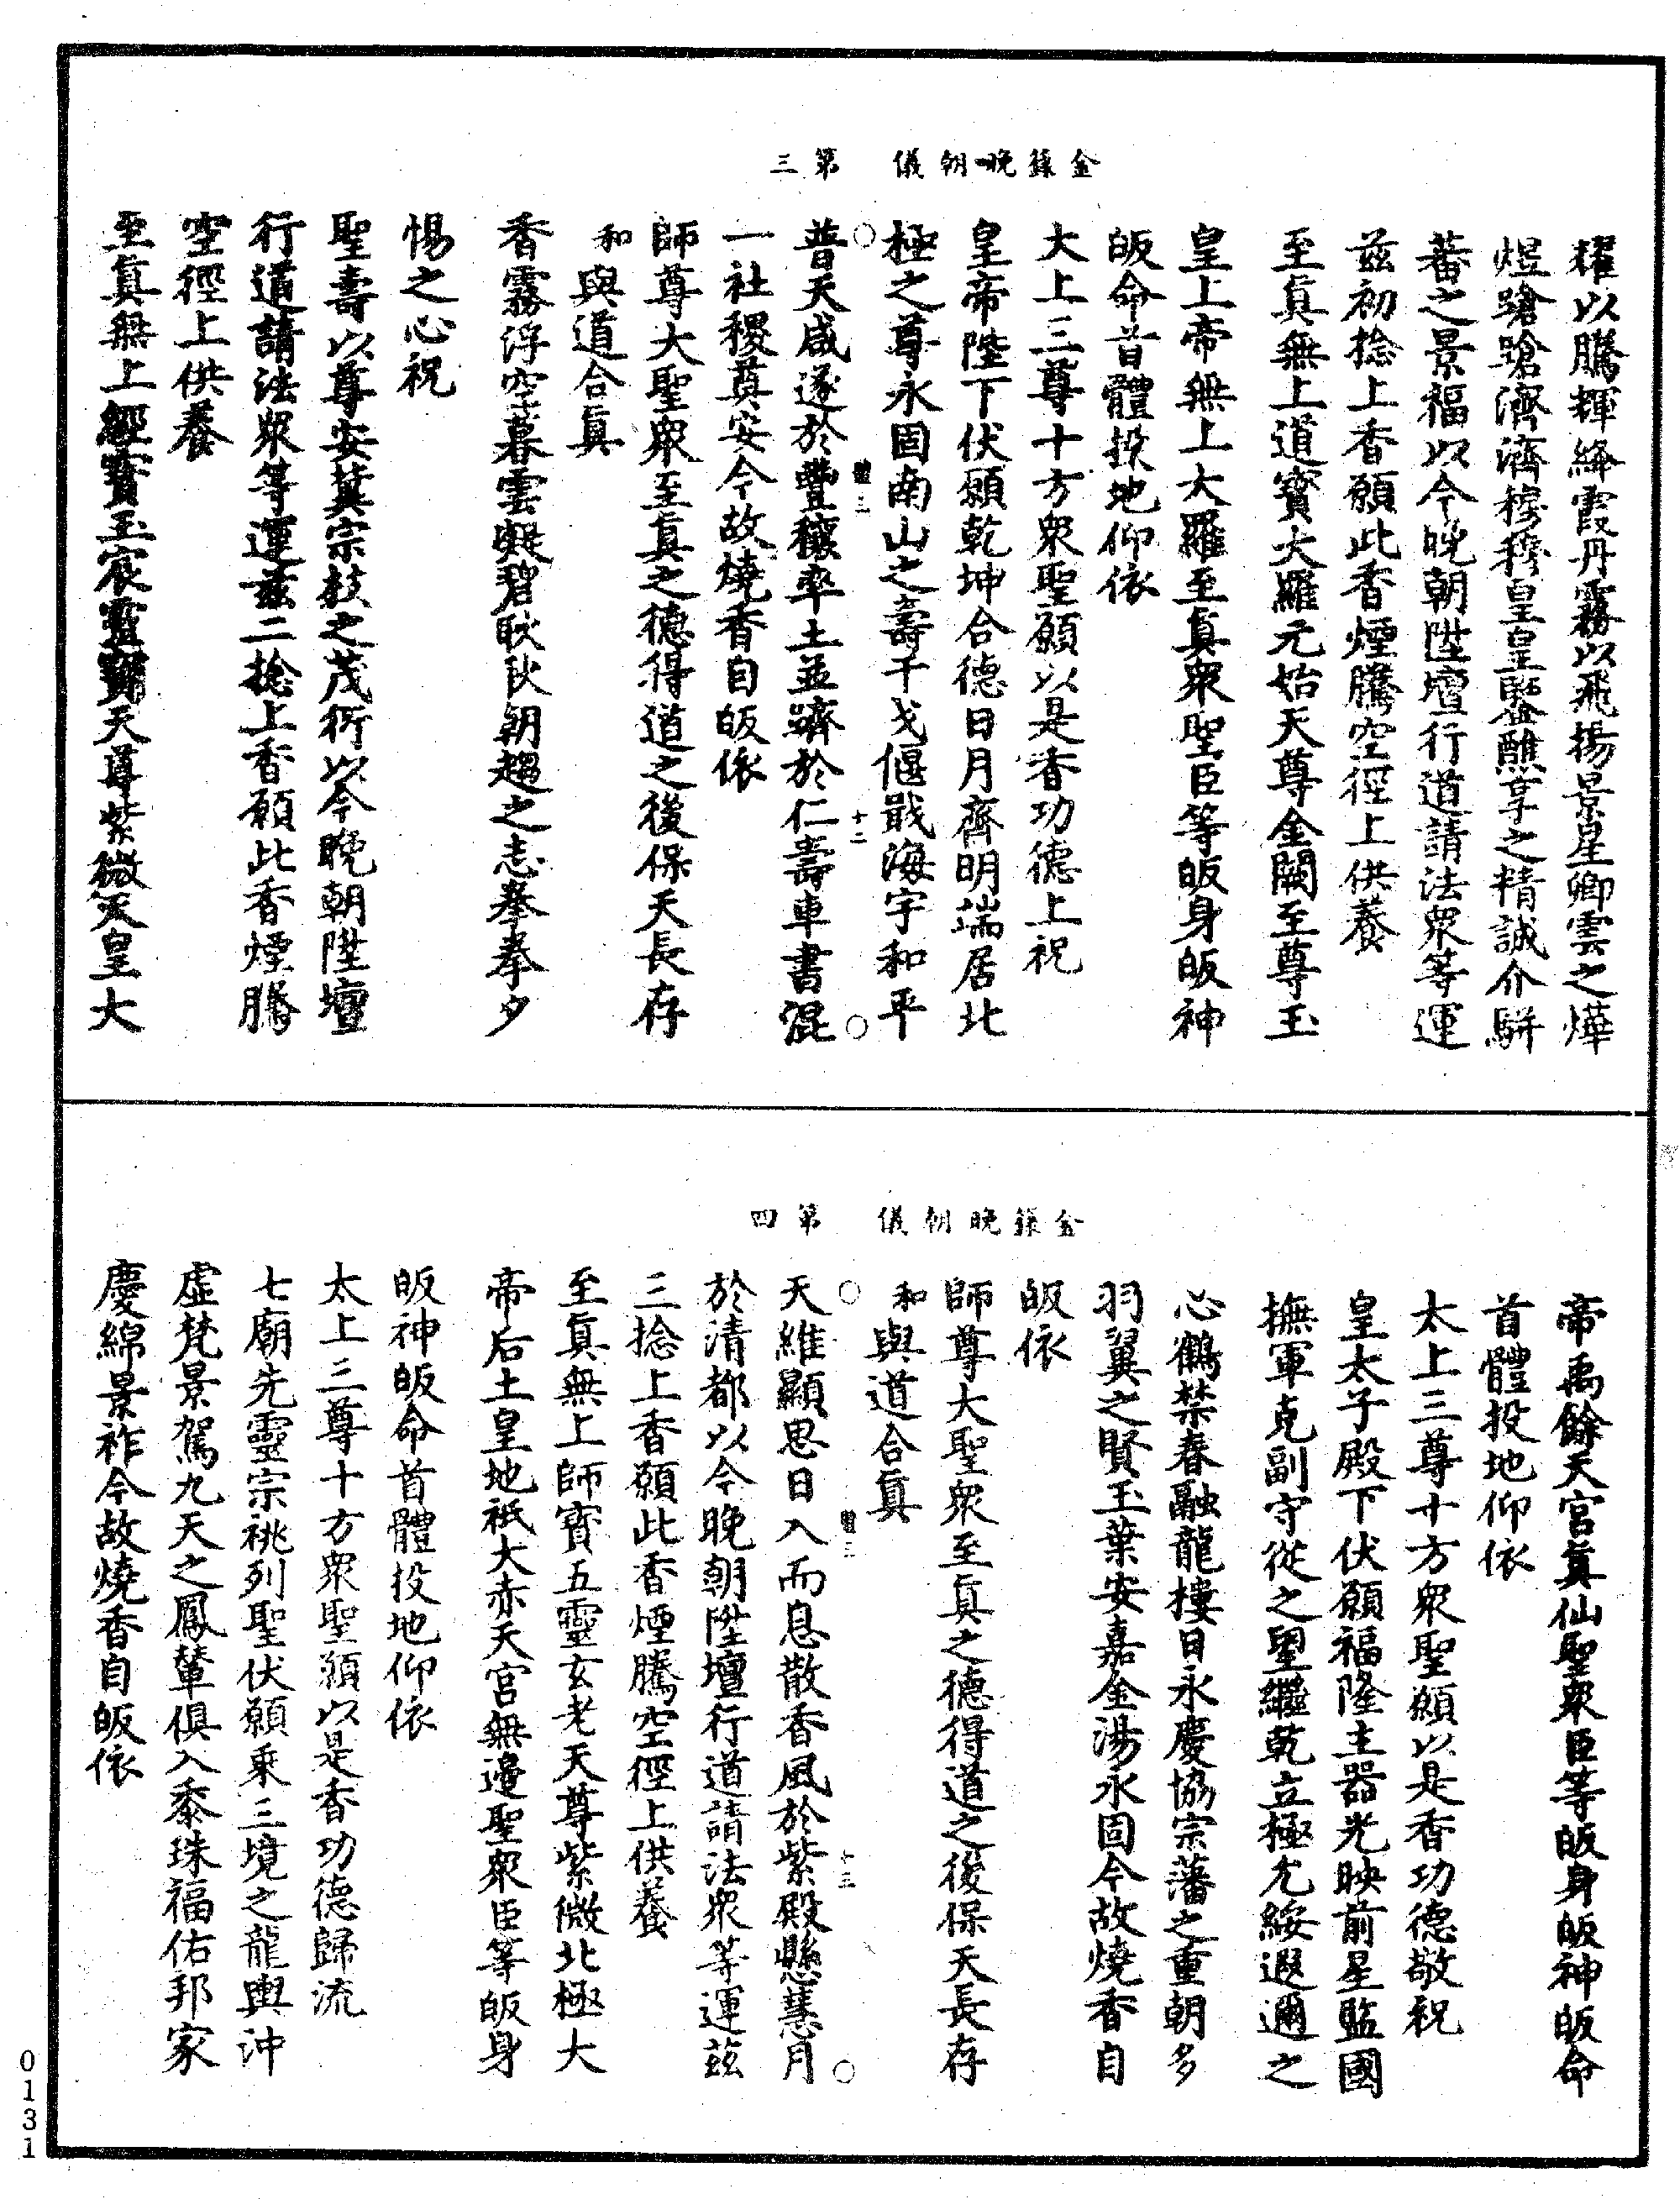 金籙晚朝儀 第三
耀以騰輝絳霞丹霧以飛揚景星卿雲之燁
煜蹌蹌濟濟穆穆皇皇監醮享之精誠介駢
蕃之景福以今晚朝陞壇行道請法衆等運
茲初捻上香願此香煙騰空徑上供養
至眞無上道寳大羅元始天尊金闕至尊玉
皇上帝無上大羅至眞衆聖臣等皈身皈神
皈命首體投地仰依
大上三尊十方衆聖願以是香功德上祝
皇帝陛下伏願乾坤合德日月齊明端居北
極之尊永固南山之壽干戈偃戢海宇和平
體三 十二
普天咸遂於豐穰率土並躋於仁壽車書混
一社稷奠安今故燒香自皈依
師尊大聖衆至眞之德得道之後保天長存
和與道合眞
香霧浮空暮雲凝碧耿耿朝趨之志拳拳夕
惕之心祝
聖壽以尊安冀宗枝之茂衍以今晚朝陞壇
行道請法衆等運茲二捻上香願此香煙騰
空徑上供養
至眞無上經寳玉宸靈寳天尊紫微天皇大
金籙晚朝儀 第四
帝禹餘天宮眞仙聖衆臣等皈身皈神皈命
首體投地仰依
太上三尊十方衆聖願以是香功德敬祝
皇太子殿下伏願福隆主器光映前星監國
撫軍克副守從之望繼乾立極尤綏遐邇之
心鶴禁春融龍樓日永慶協宗藩之重朝多
羽翼之賢玉葉安嘉金湯永固今故燒香自
皈依
師尊大聖衆至眞之德得道之後保天長存
和與道合眞
體三 十三
天維顯思日入而息散香風於紫殿懸慧月
於清都以今晚朝陞壇行道請法衆等運茲
三捻上香願此香煙騰空徑上供養
至眞無上師寳五靈玄老天尊紫微北極大
帝后土皇地祇大赤天宮無邊聖衆臣等皈身
皈神皈命首體投地仰依
太上三尊十方衆聖願以是香功德歸流
七廟先靈宗祧列聖伏願乘三境之龍輿沖
虛梵景駕九天之鳳輦俱入黍珠福佑邦家
慶綿景祚今故燒香自皈依
0131